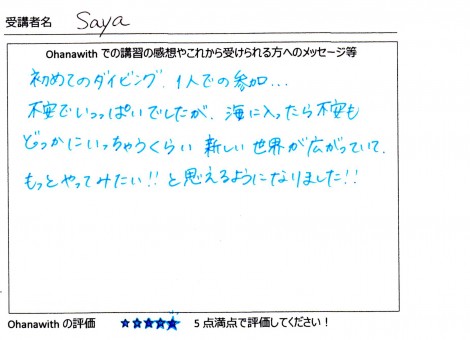 受講者名 Saya
Ohanawith での講習の感想やこれから受けられる方へのメッセージ等
初めてのダイビング、1人での参加...
不安でいっっぱいでしたが、海に入ったら不安も
どっかにいっちゃうくらい 新しい世界が広がっていて、
もっとやってみたい!! と思えるようになりました!!
Ohanawith の評価 ★★★★★ 5 点満点で評価してください！